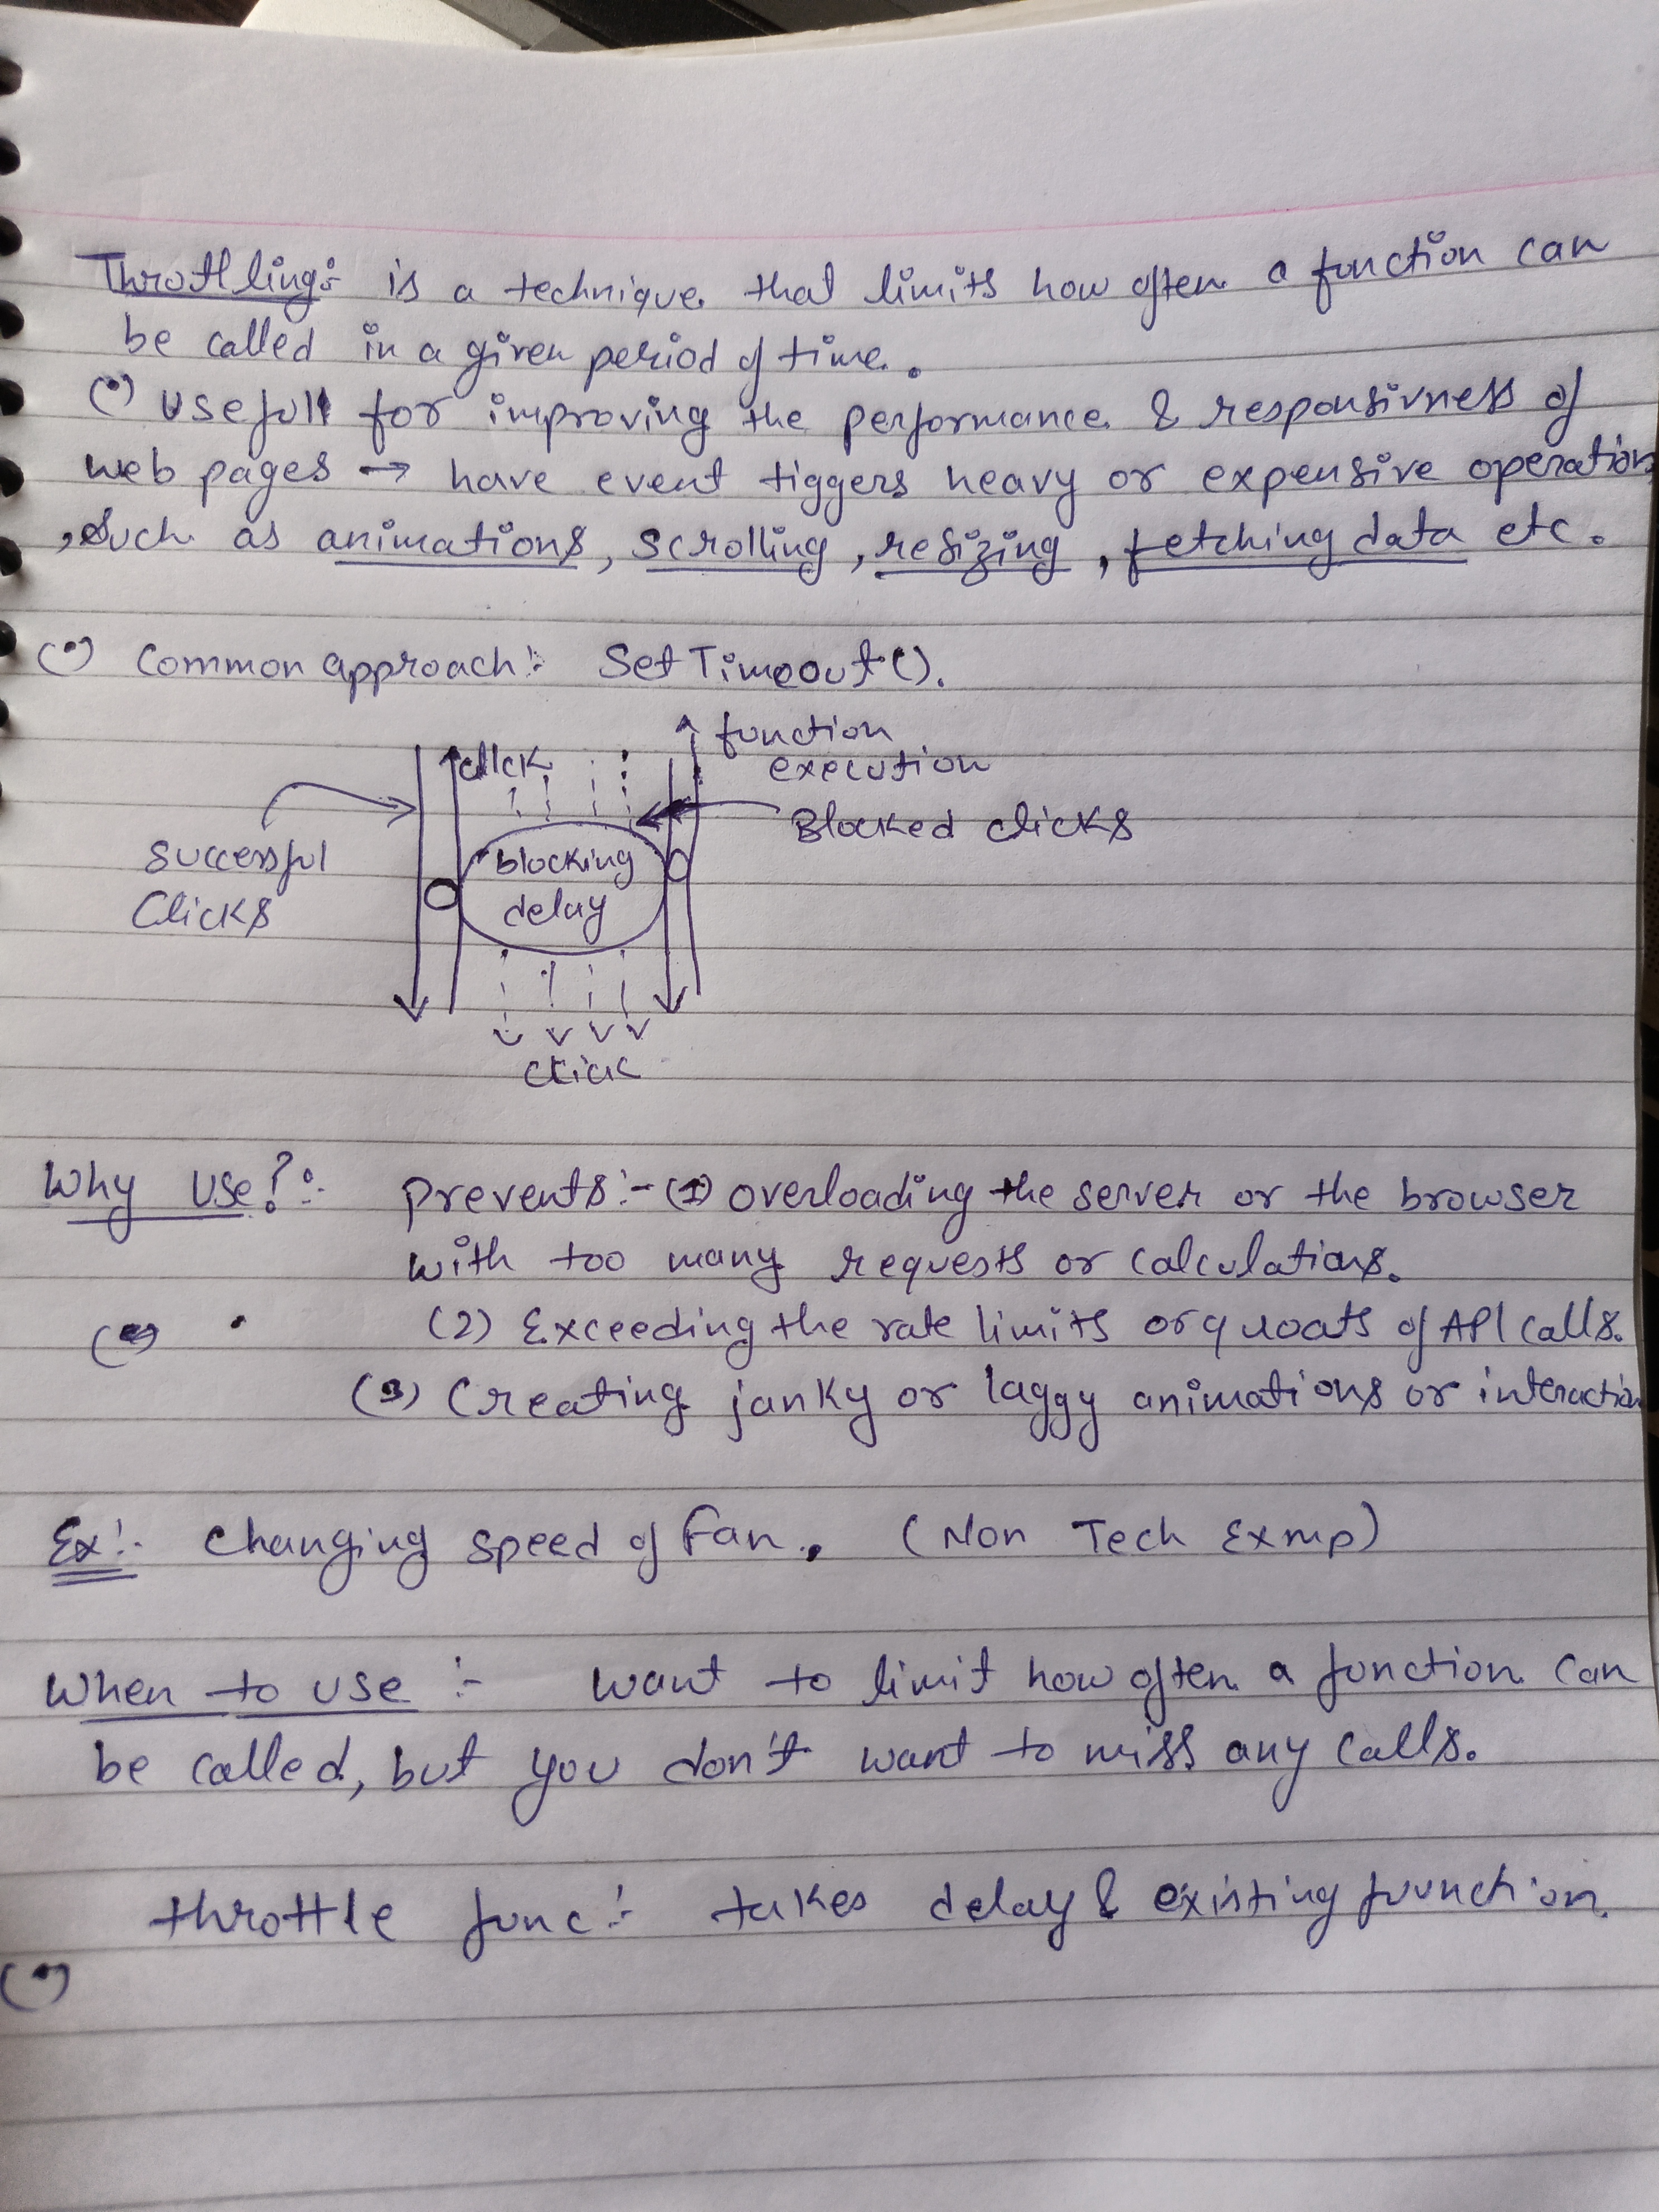 Throttling:- is a technique that limits how often a function can
be called in a given period of time.
(•) Usefull for improving the performance & responsivness of
web pages → have event tiggers heavy or expensive operation
, such as animations, scrolling, resizing, fetching data etc.
(•) Common approach:- SetTimeout().
click
function
execution
Blocked clicks
Successful
Clicks
blocking
delay
click
Why Use?:- prevents:- (1) overloading the server or the browser
with too many requests or calculations.
(2) Exceeding the rate limits or quoats of API calls.
(3) Creating janky or laggy animations or interaction
Ex:- Changing speed of Fan. (Non Tech Exmp)
When to use :- want to limit how often a function can
be called, but you don't want to miss any calls.
throttle func:- takes delay & existing fuunction.
(•)